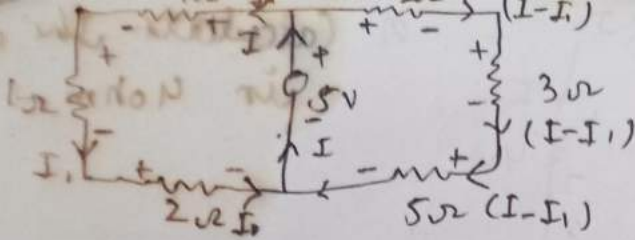 (I-I₁)
- + I + -
+ + +
1Ω 5V 3Ω
- - -
I (I-I₁)
I₁ + - - +
2Ω I₁ 5Ω (I-I₁)